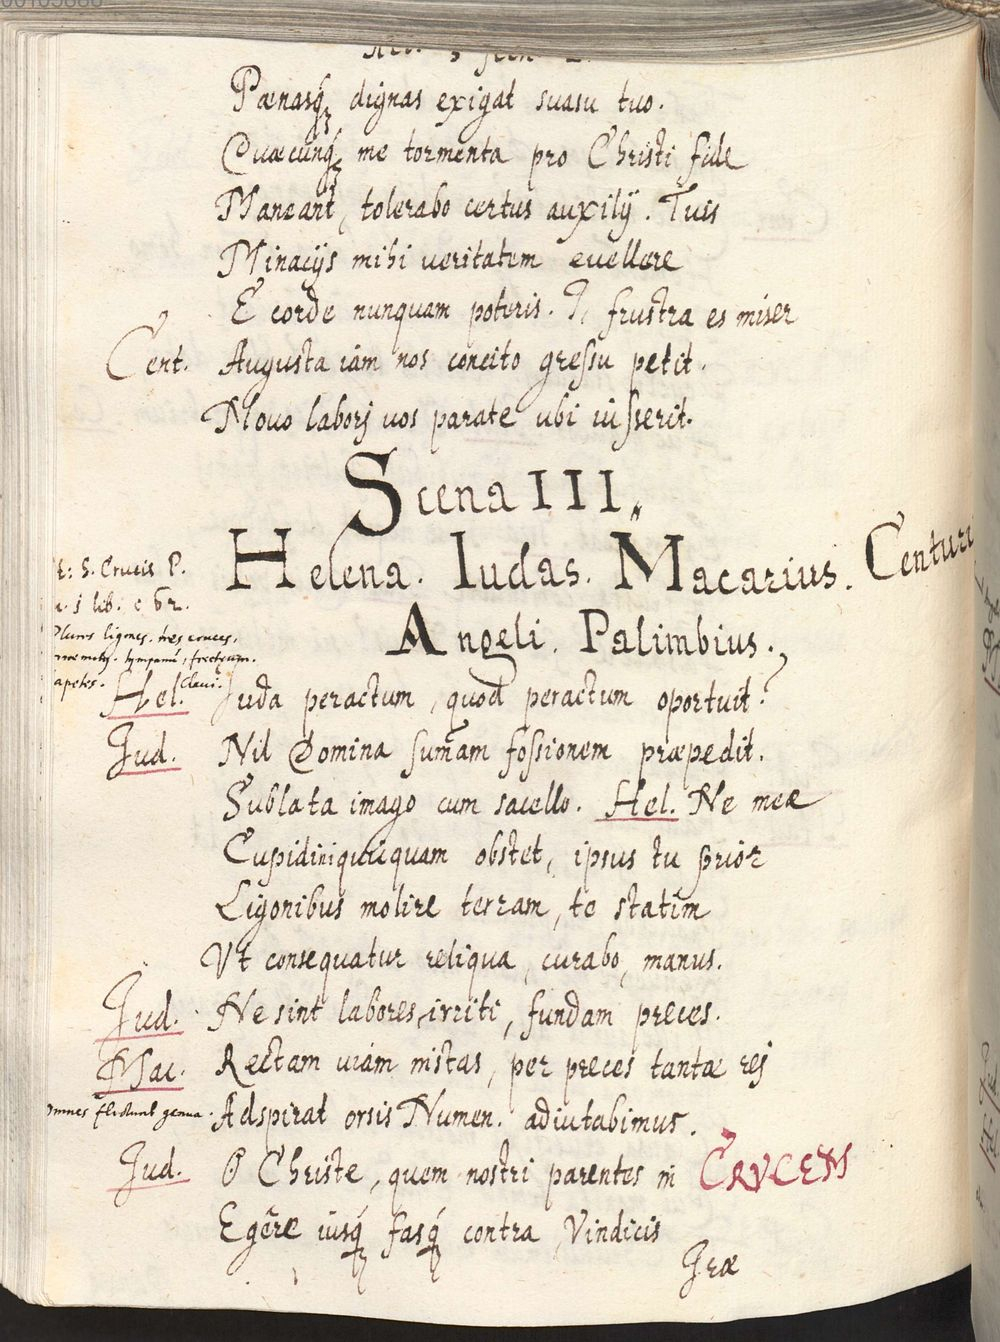 Pœnasq3 dignas exigat suasu tuo.
Quæcunq3 me tormenta pro Christi fide
Maneant, tolerabo certus auxilij. Tuis
Minacijs mihi veritatem euellere
E corde nunquam poteris. I, frustra es miser
Cent. Augusta iam nos concito gressu petit.
Mouo laborj vos parate vbi iusserit.
Scena III.
Helena. Iudas. Macarius. Centuri
Angeli. Palimbius.
S. Crucis P.
lib. c 62.
Plures ligones. tres cruces.
tympanū,
apetes. claui.
Hel. Juda peractum, quod peractum oportuit?
Jud. Nil Domina summam fossionem præpedit.
Sublata imago cum sacello. Hel. Ne meæ
Cupidini quicquam obstet, ipsus tu prior
Ligonibus molire terram, te statim
Vt consequatur reliqua, curabo, manus.
Jud. Ne sint labores irriti, fundam preces.
Mac. Rectam viam nistas, per preces tantæ rej
omnes flectunt genua. Adspirat orsis Numen. adiutabimus.
Jud. O Christe, quem nostri parentes in CRVCEM
Egêre iusq́3 fasq́3 contra, Vindicis
Iræ